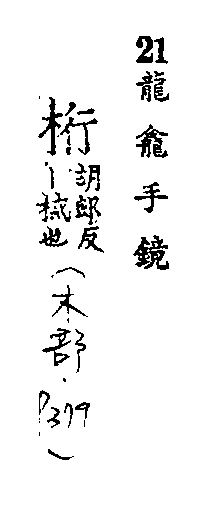 21龍龕手鏡
桁胡郎反
丨械也(木部.P379)